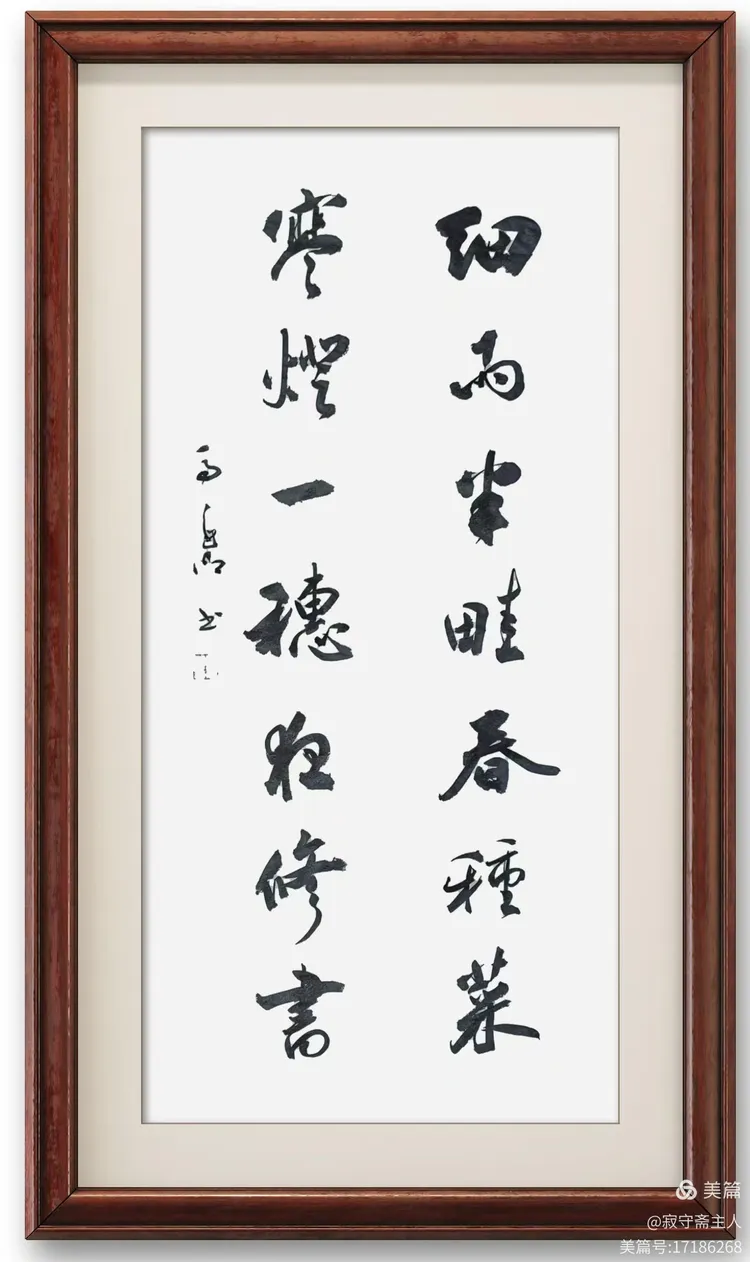 细雨半畦春種菜
寒燈一穗夜修書
美篇
@寂守斋主人
美篇号:17186268